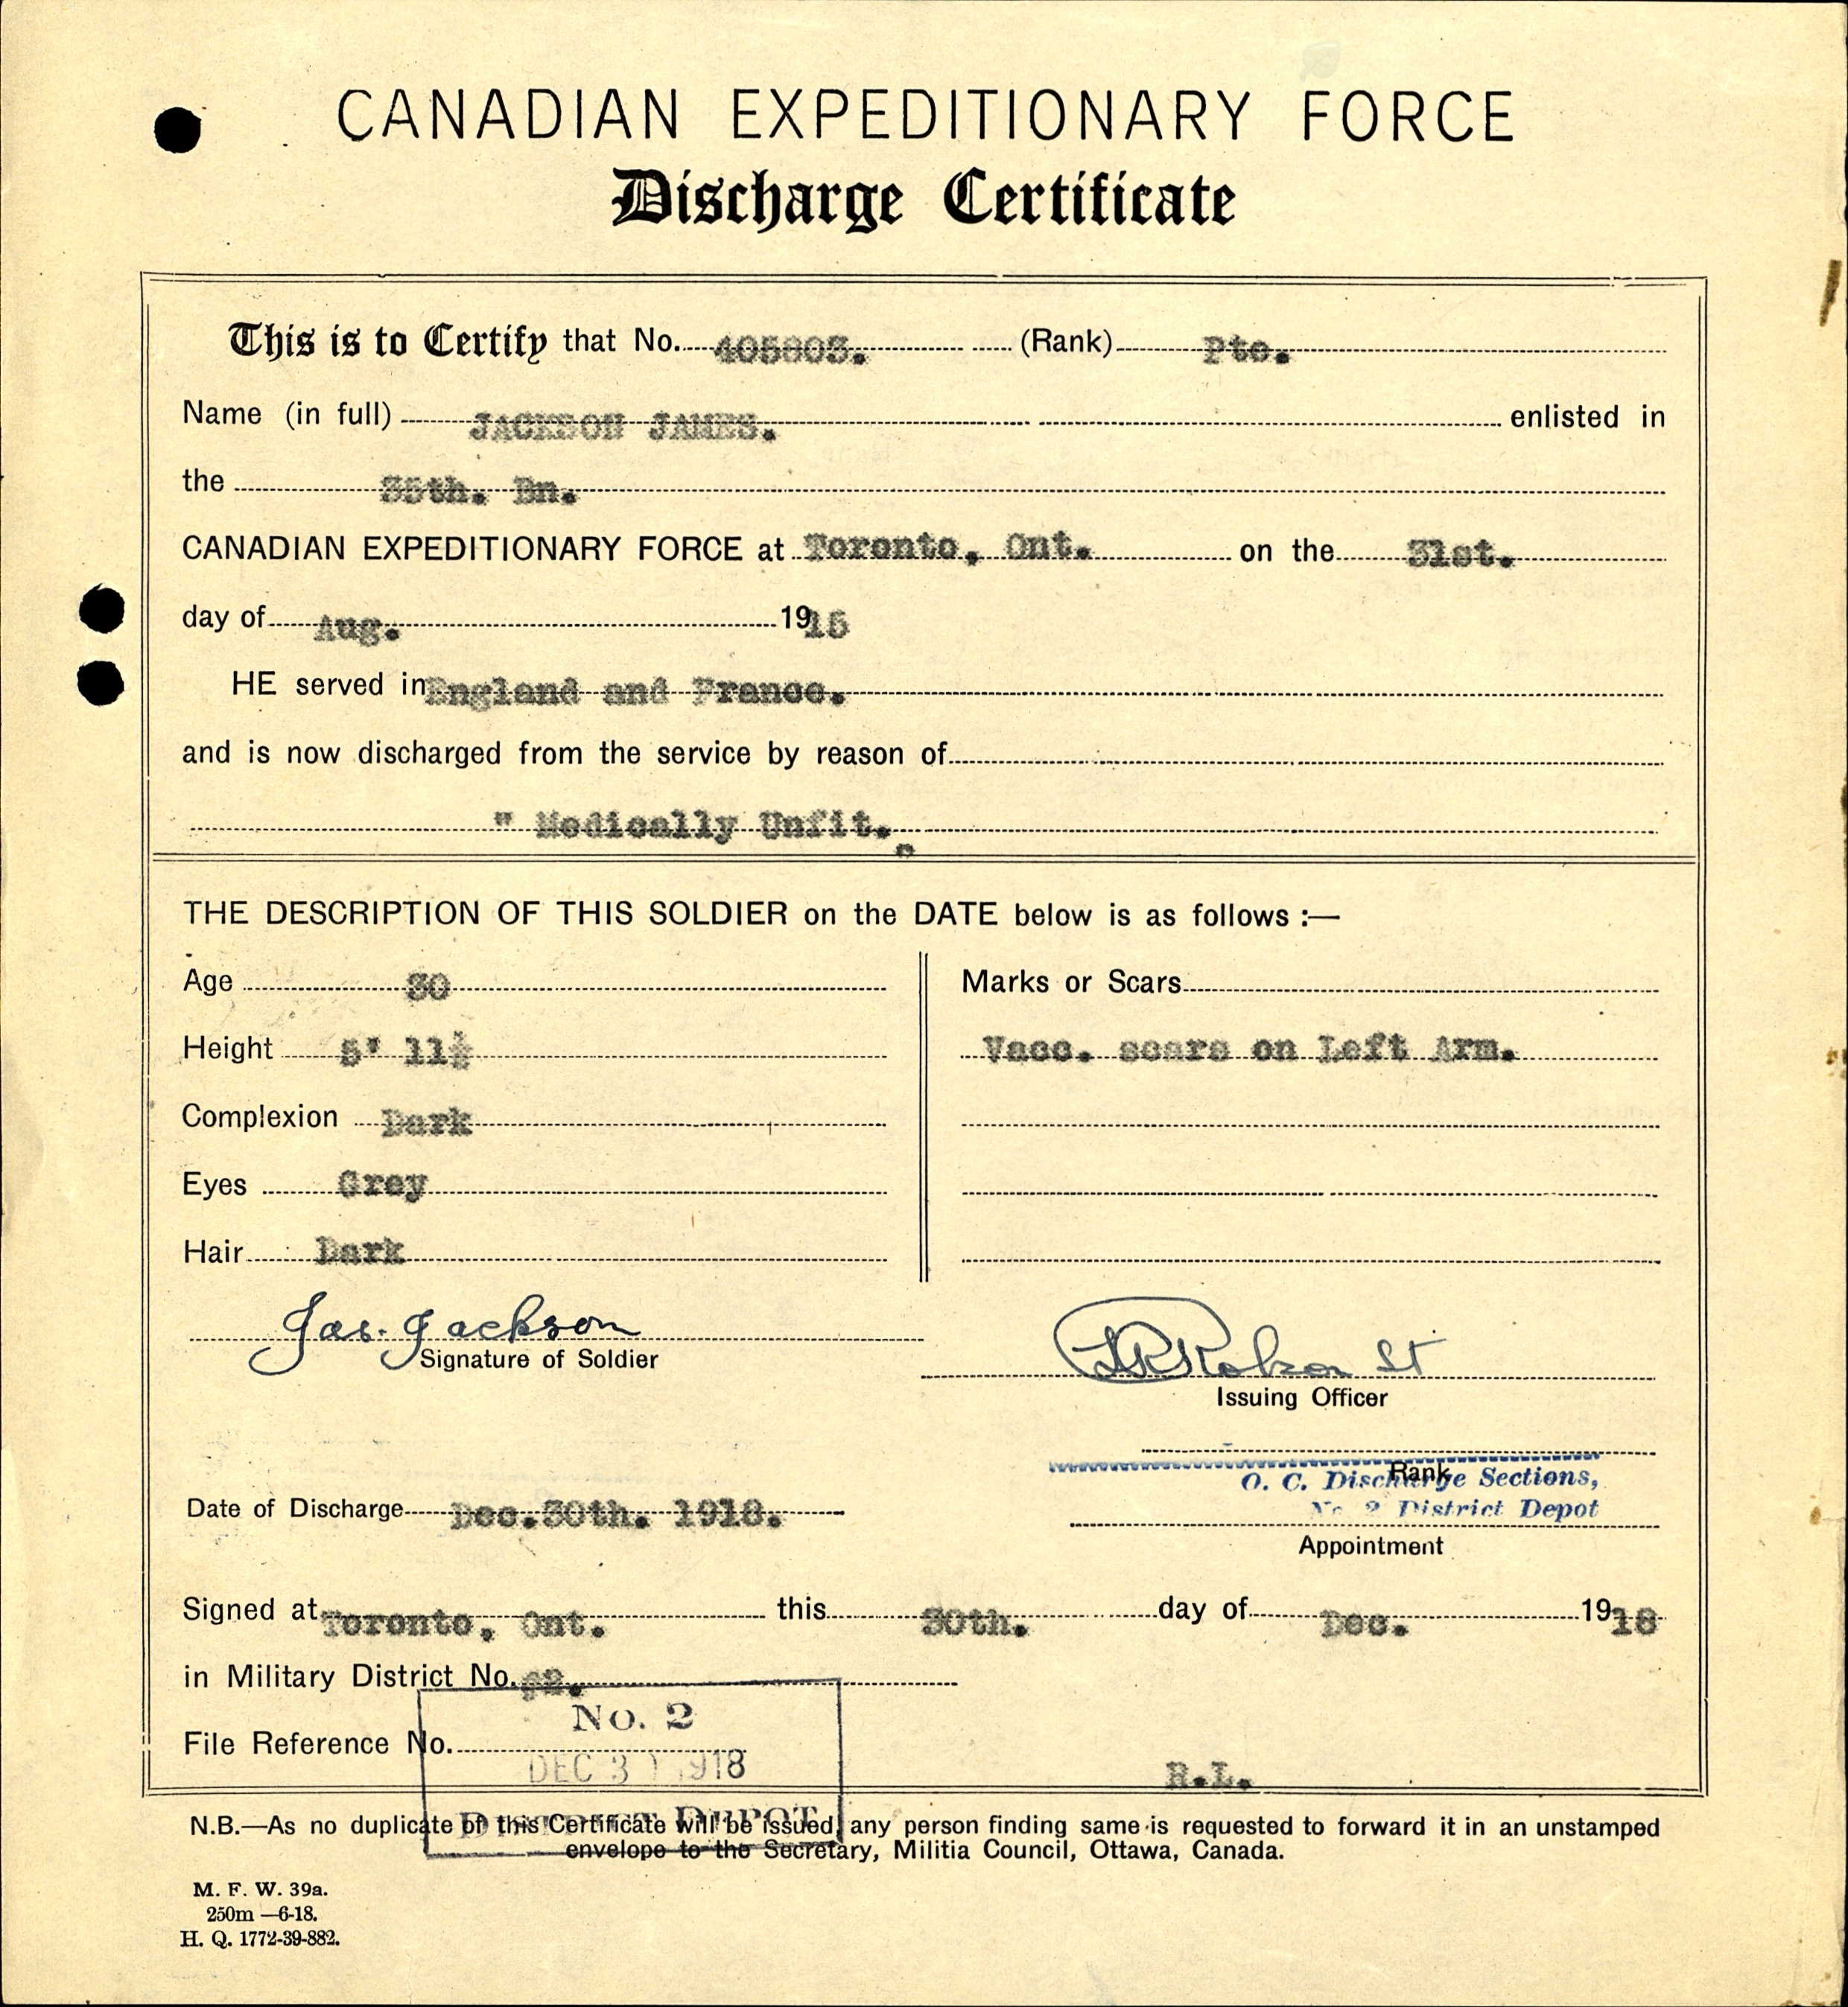 CANADIAN EXPEDITIONARY FORCE
Discharge Certificate
This is to Certify that No. 405803. (Rank) Pte.
Name (in full) JACKSON JAMES. enlisted in
the 35th. Bn.
CANADIAN EXPEDITIONARY FORCE at Toronto, Ont. on the 31st.
day of Aug. 1915
HE served in England and France.
and is now discharged from the service by reason of
" Medically Unfit. "
THE DESCRIPTION OF THIS SOLDIER on the DATE below is as follows :—
Age 30
Marks or Scars
Height 5' 11½
Vacc. scars on Left Arm.
Complexion Dark
Eyes Grey
Hair Dark
Jas. Jackson
Signature of Soldier
Issuing Officer
Rank
O. C. Discharge Sections,
No. 2 District Depot
Date of Discharge Dec.30th. 1918.
Appointment
Signed at Toronto, Ont. this 30th. day of Dec. 1918
in Military District No. #2.
No. 2
File Reference No.
DEC 3 1918
R.L.
DISTRICT DEPOT
N.B.—As no duplicate of this Certificate will be issued, any person finding same is requested to forward it in an unstamped
envelope to the Secretary, Militia Council, Ottawa, Canada.
M. F. W. 39a.
250m —6-18.
H. Q. 1772-39-882.